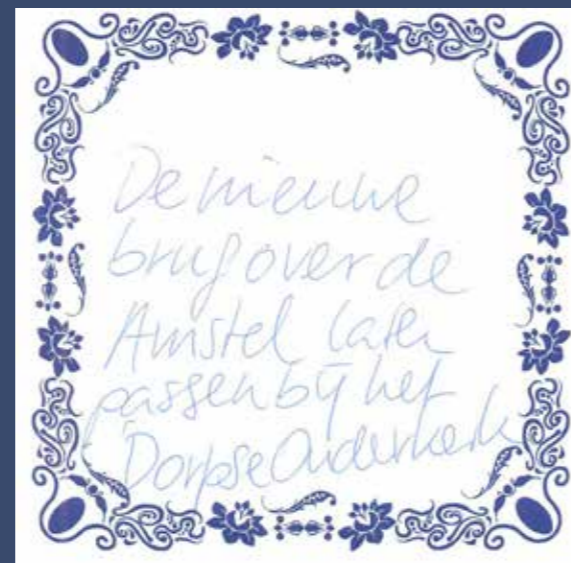 De nieuwe
brug over de
Amstel laten
passen bij het
Dorpse Ouderkerk